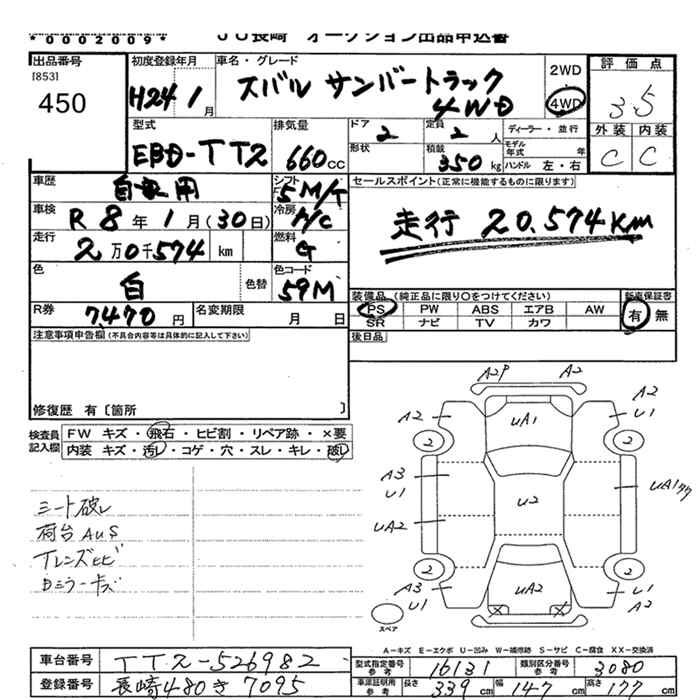 *0002009* JU長崎 オークション出品申込書
出品番号 初度登録年月 車名・グレード 評価点
[853] 450 H24 1月 スバル サンバートラック 4WD 2WD 4WD 3.5
外装 内装
C C
型式 排気量 ドア 定員 ディーラー・並行
EBD-TT2 660cc 2 2人 モデル年式 年
形状 積載 350kg ハンドル 左・右
車歴 自家用 シフト 5M/T セールスポイント(正常に機能するものに限ります)
車検 R8年1月(30日) 冷房 A/C 走行 20.574Km
走行 2万0千574 km 燃料 G
色 白 色替 色コード 59M
装備品(純正品に限り○をつけてください) 新車保証書
R券 7,470円 名変期限 月 日 PS PW ABS エアB AW 有 無
SR ナビ TV カワ
注意事項申告欄(不具合内容等は具体的に記入して下さい) 後日品
修復歴 有〔箇所 〕
検査員記入欄 FW キズ・飛石・ヒビ割・リペア跡・×要
内装 キズ・汚レ・コゲ・穴・スレ・キレ・破レ
シート破レ
荷台AUS
Tレンズヒビ
Bミラーキズ
A2P A2
A2 UA1 A2
U1
2 2
A3 U1 U2 UA1
UA2
2 2
A3 U1 UA2 U1 A2
スペア
A-キズ E-エクボ U-凹み W-補修跡 S-サビ C-腐食 XX-交換済
車台番号 TT2-526982 型式指定番号 参考 16131 類別区分番号 参考 3080
登録番号 長崎480き7095 車庫証明用 参考 長さ 339cm 幅 147cm 高さ 177cm